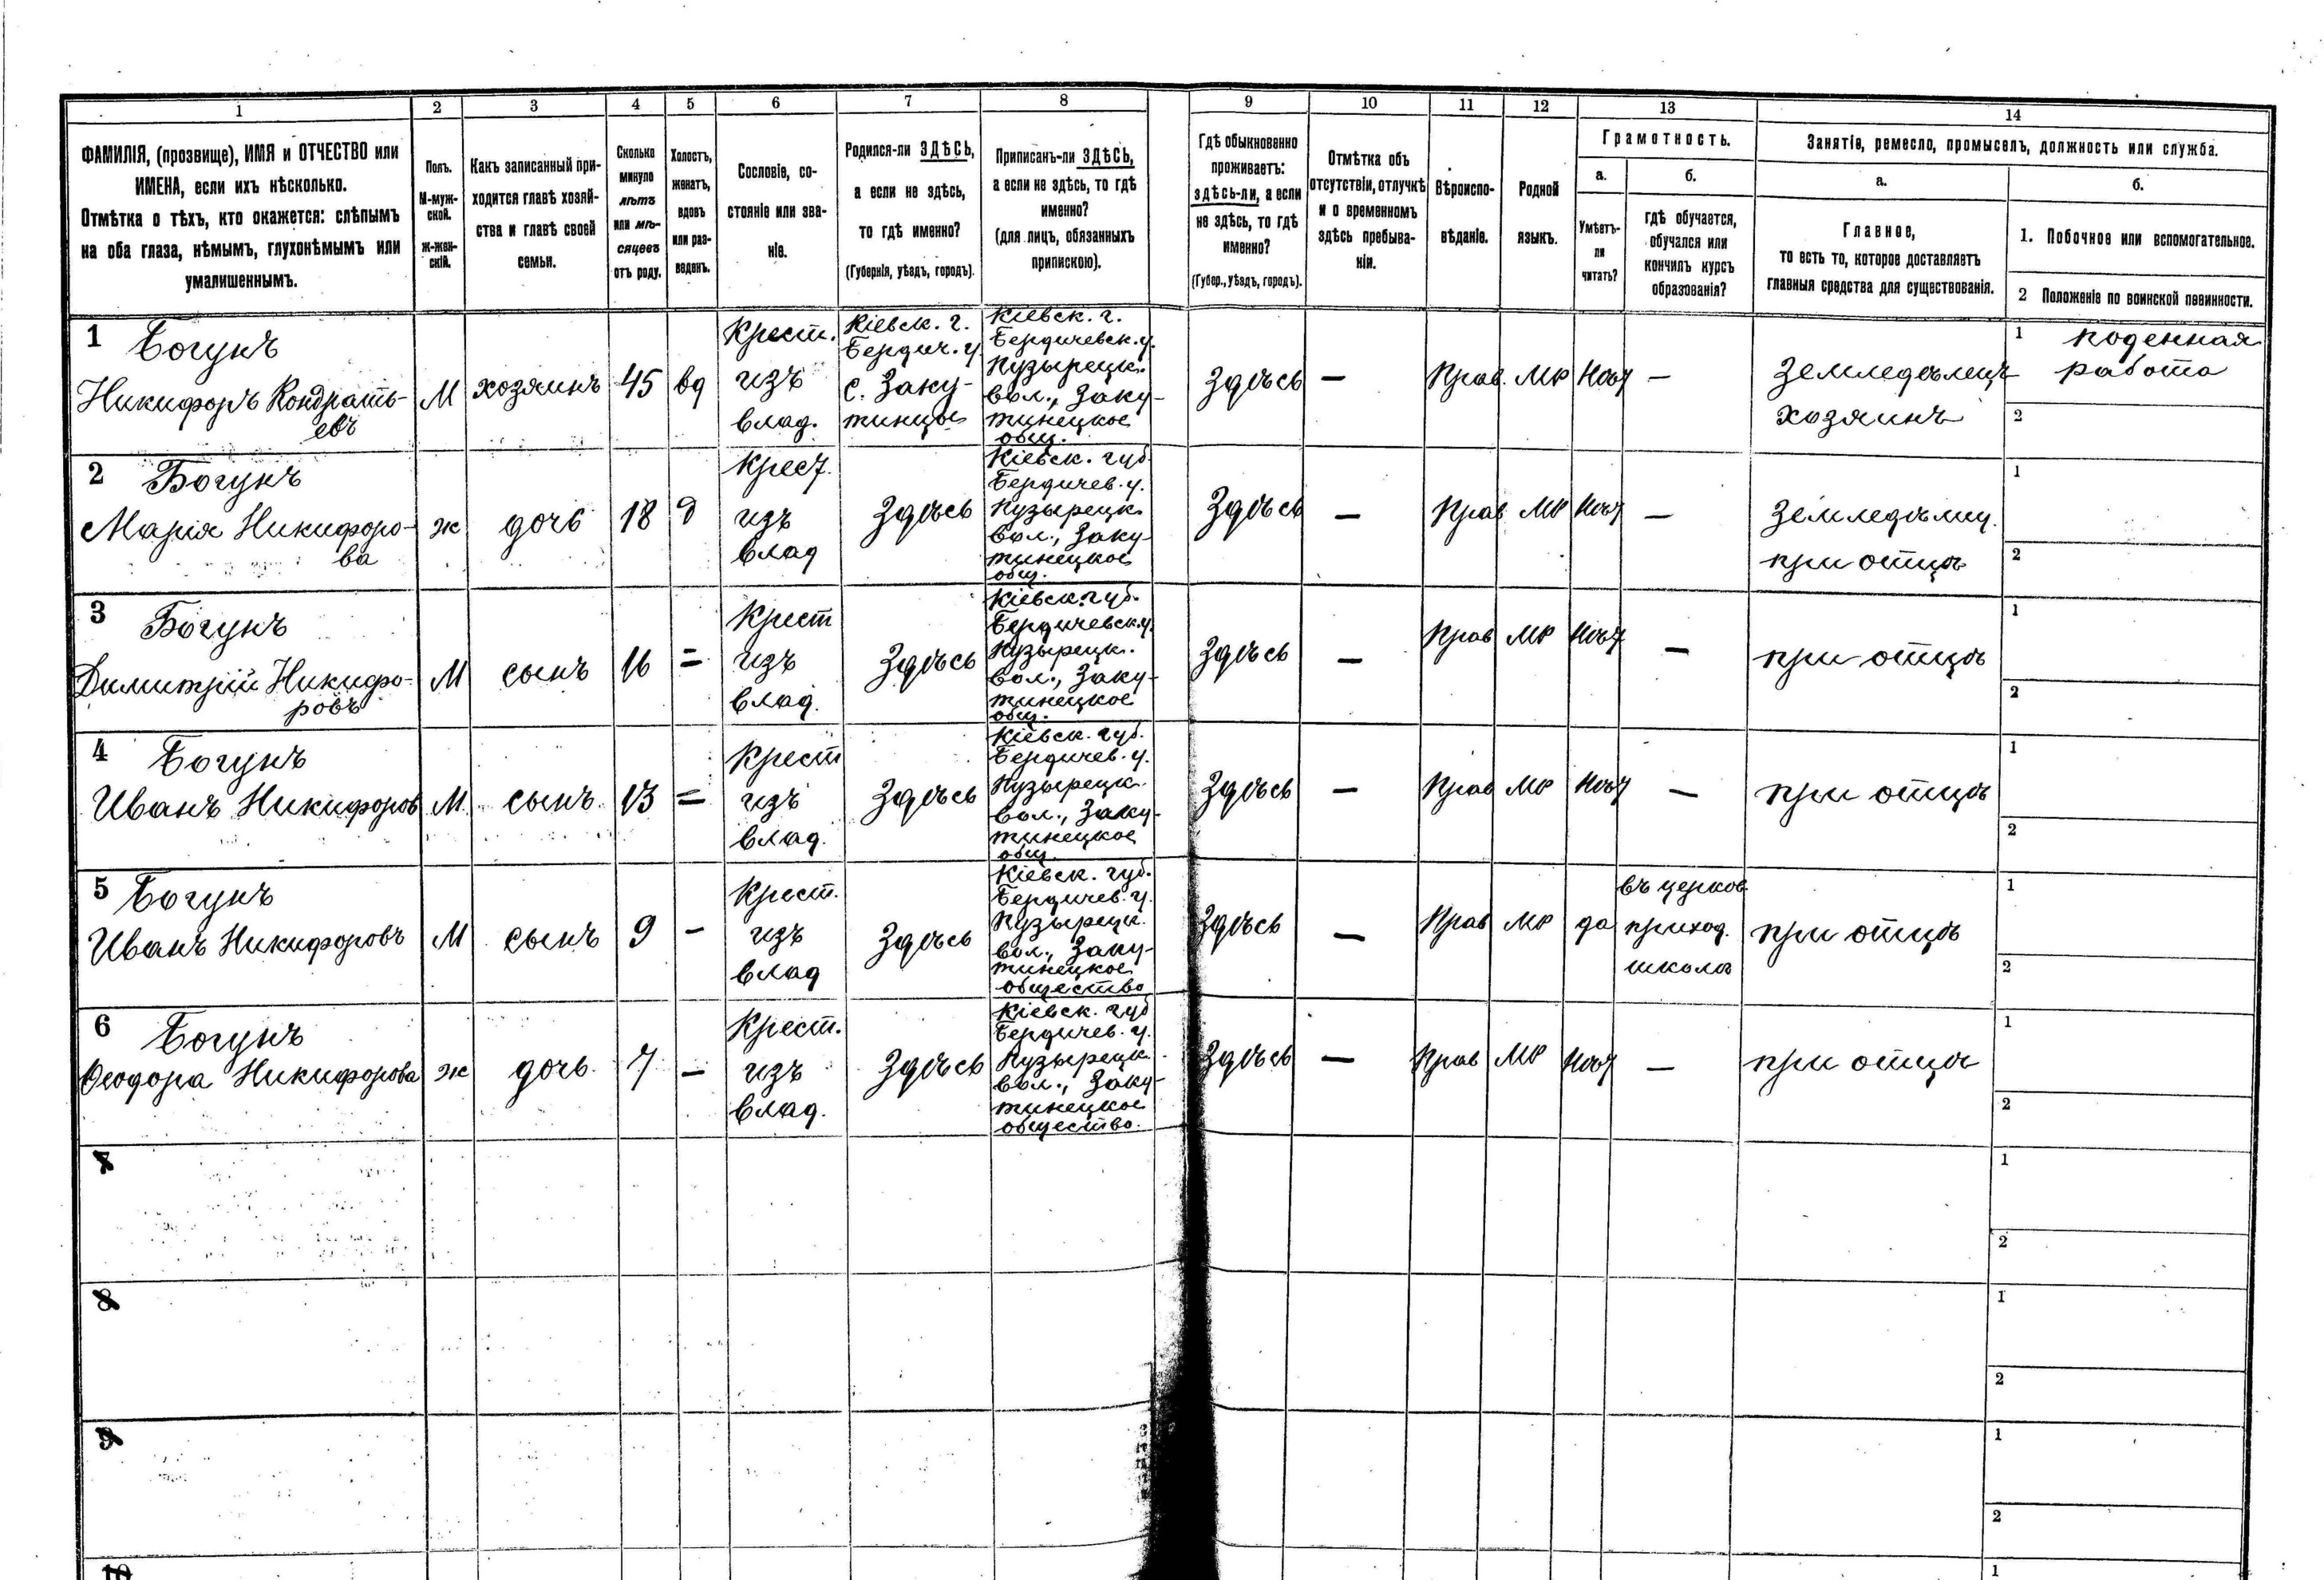 1
2
3
4
5
6
7
8
9
10
11
12
13
14
ФАМИЛІЯ, (прозвище), ИМЯ и ОТЧЕСТВО или
ИМЕНА, если ихъ нѣсколько.
Отмѣтка о тѣхъ, кто окажется: слѣпымъ
на оба глаза, нѣмымъ, глухонѣмымъ или
умалишеннымъ.
Полъ.
М-муж-
ской.
Ж-жен-
скій.
Какъ записанный при-
ходится главѣ хозяй-
ства и главѣ своей
семьи.
Сколько
минуло
лѣтъ
или мѣ-
сяцевъ
отъ роду.
Холостъ,
женатъ,
вдовъ
или раз-
веденъ.
Сословіе, со-
стояніе или зва-
ніе.
Родился-ли ЗДѢСЬ,
а если не здѣсь,
то гдѣ именно?
(Губернія, уѣздъ, городъ).
Приписанъ-ли ЗДѢСЬ,
а если не здѣсь, то гдѣ
именно?
(для лицъ, обязанныхъ
припискою).
Гдѣ обыкновенно
проживаетъ:
здѣсь-ли, а если
не здѣсь, то гдѣ
именно?
(Губер., уѣздъ, городъ).
Отмѣтка объ
отсутствіи, отлучкѣ
и о временномъ
здѣсь пребыва-
ніи.
Вѣроиспо-
вѣданіе.
Родной
языкъ.
Грамотность.
а.
Умѣетъ-
ли
читать?
б.
гдѣ обучается,
обучался или
кончилъ курсъ
образованія?
Занятіе, ремесло, промыселъ, должность или служба.
а.
Главное,
то есть то, которое доставляетъ
главныя средства для существованія.
б.
1. Побочное или вспомогательное.
2 Положеніе по воинской повинности.
1 Богунъ
Никифоръ Кондрать-
евъ
М
хозяинъ
45
вд
Крест.
изъ
влад.
Кіевск. г.
Бердич. у.
с. Заку-
тинцы
Кіевск. г.
Бердичевск. у.
Пузырецк.
вол., Заку-
тинецкое
общ.
Здѣсь
—
Прав.
МР
Нѣт
—
Земледѣлецъ
хозяинъ
1 поденная
работа
2
2 Богунъ
Марія Никифоро-
ва
ж
дочь
18
д
Крест.
изъ
влад
Здѣсь
Кіевск. губ.
Бердичев. у.
Пузырецк.
вол., Заку-
тинецкое
общ.
Здѣсь
—
Прав
МР
Нѣт
—
Земледѣлиц.
при отцѣ
1
2
3 Богунъ
Димитрій Никифо-
ровъ
М
сынъ
16
=
Крест
изъ
влад.
Здѣсь
Кіевск. губ.
Бердичевск. у.
Пузырецк.
вол., Заку-
тинецкое
общ.
Здѣсь
—
Прав
МР
Нѣт
—
при отцѣ
1
2
4 Богунъ
Иванъ Никифоров
М.
сынъ.
13
=
Крест
изъ
влад.
Здѣсь
Кіевск. губ.
Бердичев. у.
Пузырецк.
вол., Заку-
тинецкое
общ.
Здѣсь
—
Прав
МР
Нѣт
—
при отцѣ
1
2
5 Богунъ
Иванъ Никифоровъ
М
сынъ
9
-
Крест.
изъ
влад
Здѣсь
Кіевск. губ.
Бердичев. у.
Пузырецк.
вол., Заку-
тинецкое
общество
Здѣсь
—
Прав
МР
да
въ церков
приход.
школѣ
при отцѣ
1
2
6 Богунъ
Ѳеодора Никифорова
ж
дочь.
7
-
Крест.
изъ
влад.
Здѣсь
Кіевск. губ
Бердичев. у.
Пузырецк.
вол., Заку-
тинецкое
общество.
Здѣсь
—
Прав
МР
Нѣт
—
при отцѣ
1
2
7
1
2
8
1
2
9
1
2
10
1